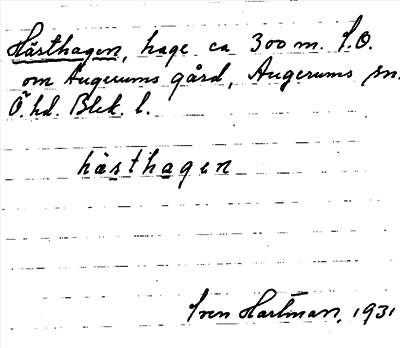 Hästhagen, hage ca 300 m. S.O.
om Augerums gård, Augerums sn.
Ö. hd. Blek. l.
hästhagen
Sven Hartman, 1931